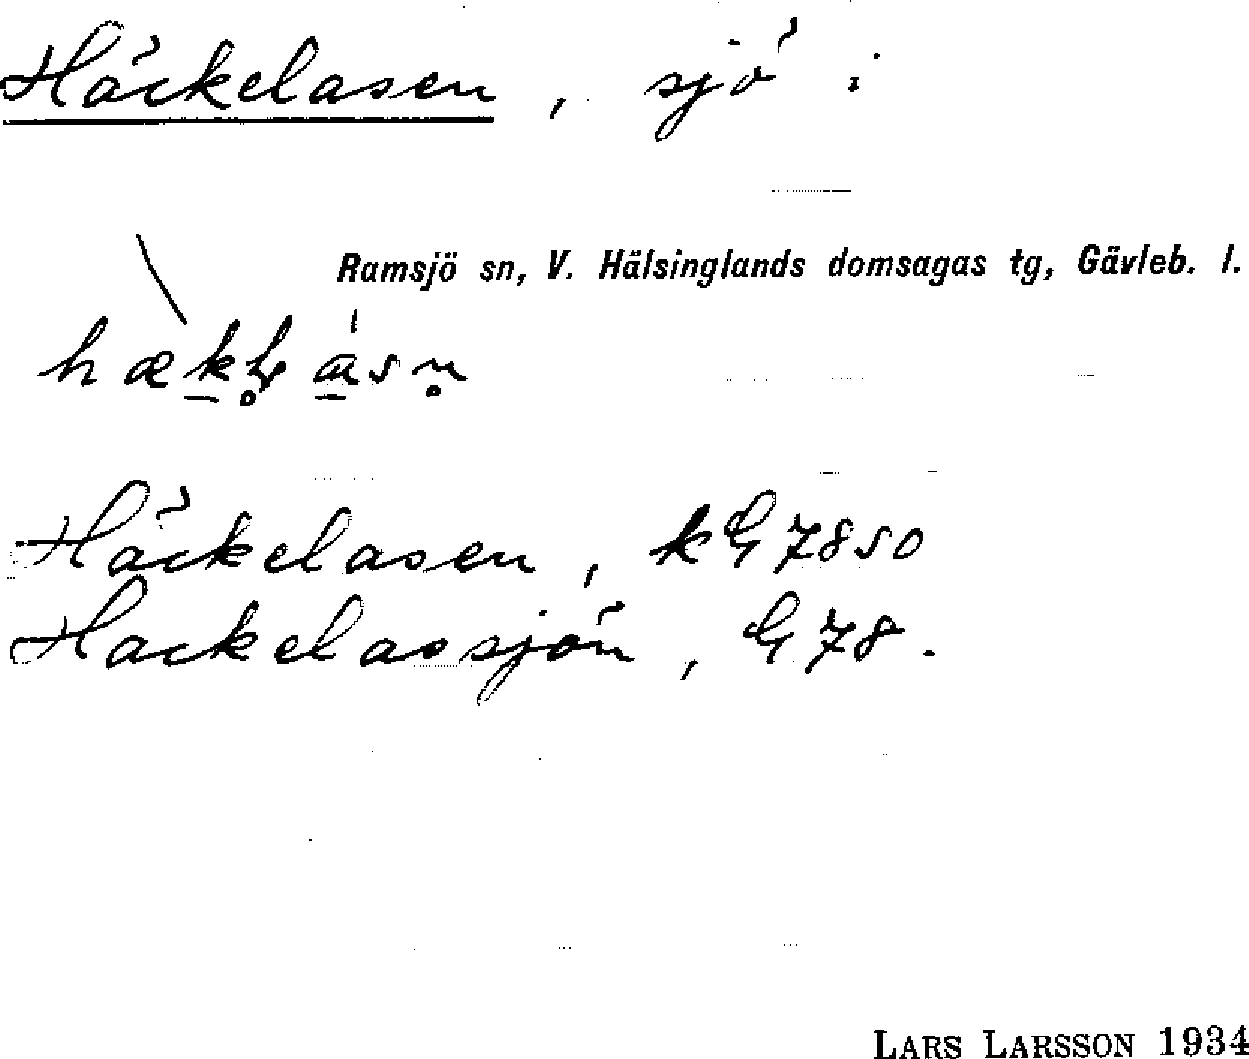 Häckelasen, sjö i
Ramsjö sn, V. Hälsinglands domsagas tg, Gävleb. l.
Häckelasen, kG 78 SO
Hackelassjön, G 78.
LARS LARSSON 1934